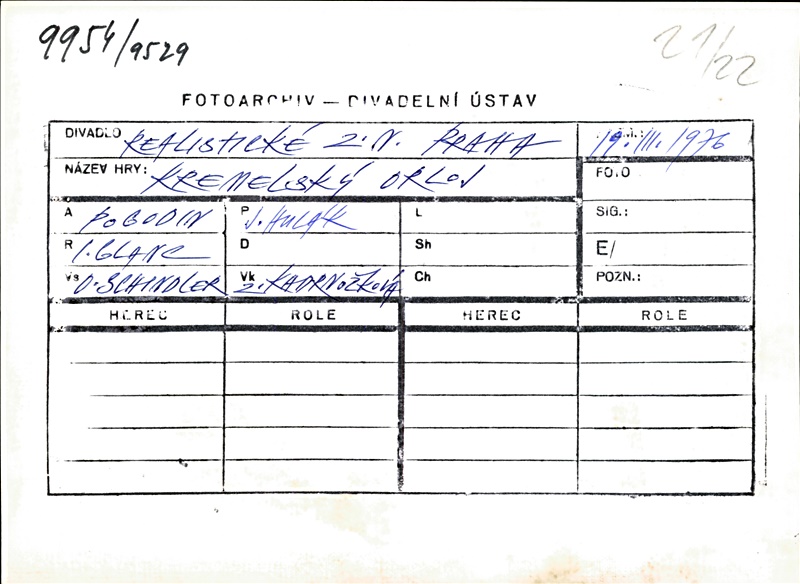 9954/9529
21/22
FOTOARCHIV — DIVADELNÍ ÚSTAV
DIVADLO REALISTICKÉ Z.N. PRAHA 19.III.1976
NÁZEV HRY: KREMELSKÝ ORLOJ FOTO
A POGODIN P J. HULÁK L SIG.:
R I. GLANC D Sh E/
Vs O. SCHINDLER Vk Z. KADRNOŽKOVÁ Ch POZN.:
HEREC ROLE HEREC ROLE